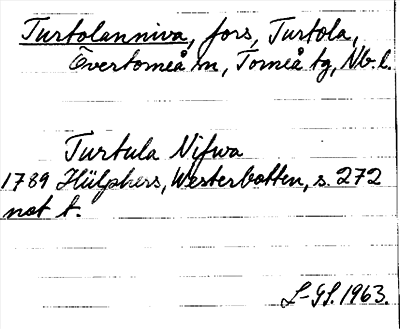 Turtolanniva, fors, Turtola,
Övertorneå sn, Torneå tg, Nb. l.
Turtula Nifwa
1789 Hülphers, Westerbotten, s. 272
not t.
L-GL. 1963.